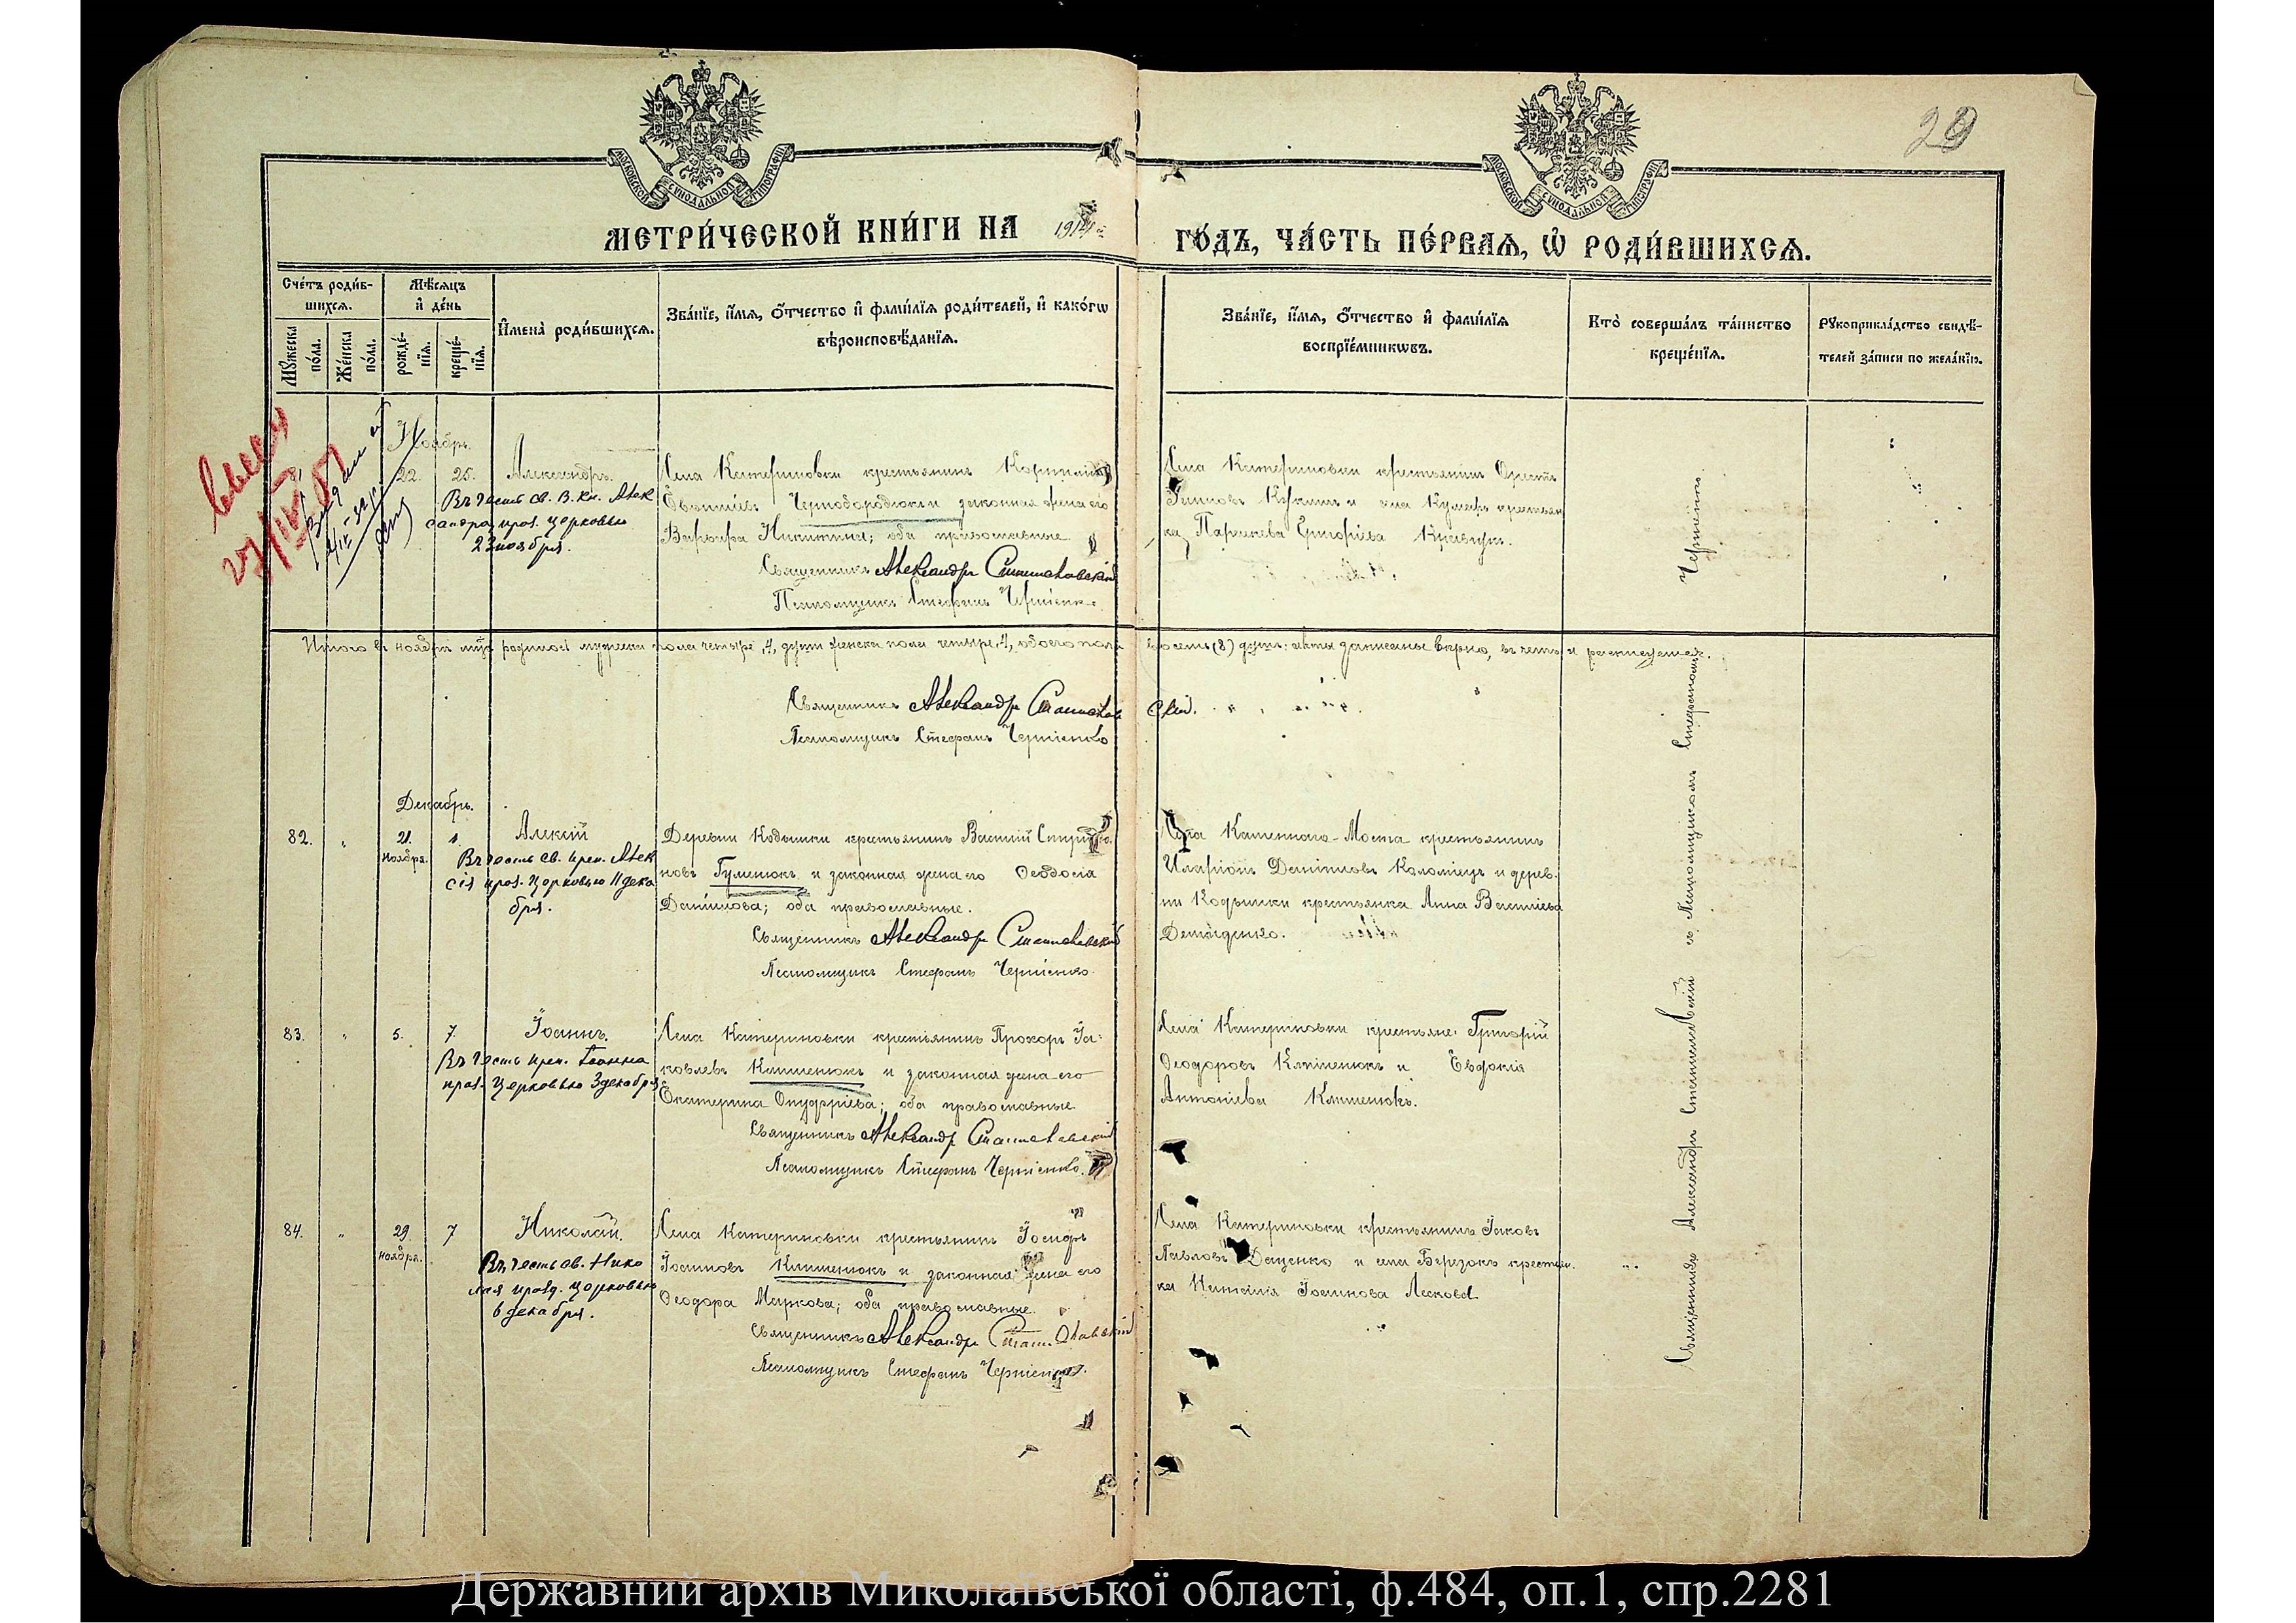 29
МОСКОВСКОЙ СѴНОДАЛЬНОЙ ТИПОГРАФІИ
МОСКОВСКОЙ СѴНОДАЛЬНОЙ ТИПОГРАФІИ
МЕТРИ́ЧЕСКОЙ КНИ́ГИ НА 1914 ГО́ДЪ, ЧА́СТЬ ПЕ́РВАЯ, Ѡ РОДИ́ВШИХСЯ.
Сче́тъ роди́в-
шихся.
Мꙋжеска по́ла.
Же́нска по́ла.
Мѣ́сяцъ и де́нь
рожде́-
нїя.
креще́-
нїя.
Имена̀ роди́вшихся.
Зва́нїе, и́мя, ѻ́тчество и фами́лїя роди́телей, и како́гѡ
вѣроисповѣ́данїя.
Зва́нїе, и́мя, ѻ́тчество и фами́лїя
воспрїе́мникѡвъ.
Кто̀ соверша́лъ та́инство
креще́нїя.
Рꙋкоприкла́дство свидѣ́-
телей за́писи по жела́нїю.
Ноябрь.
22. 25. Александръ.
Въ честь св. В. Кн. Алек
сандра, праз. церковью
23 ноября.
Села Катериновки крестьянинъ
законная жена его
Варвара Никитина; оба православные
Священникъ Александръ Станиславскій
Псаломщикъ Стефанъ Черніенко
Села Катериновки крестьянинъ Орестъ
ка Параскева Григоріева Кравчукъ.
Итого въ ноябрѣ м-цѣ родилось мужеска пола четыре, 4, души женска пола четыре, 4, обоего пола восемь (8) душъ: акты записаны вѣрно, въ чемъ и росписуемся.
Священникъ Александръ Станиславскій.
Псаломщикъ Стефанъ Черніенко
Декабрь.
82. " 21. ноября. 1. Алексій
Въ честь св. преп. Алек
сія праз. церковью 11 дека
бря.
Деревни Кодымки крестьянинъ Василій Спиридо
новъ Гуменюкъ и законная жена его Ѳеодосія
Даніилова; оба православные.
Священникъ Александръ Станиславскій
Псаломщикъ Стефанъ Черніенко.
Села Каменнаго-Моста крестьянинъ
Иларіонъ Даніиловъ Коломіецъ и дерев-
ни Кодымки крестьянка Анна Василіева
83. " 5. 7. Іоаннъ.
Въ честь преп. Іоанна
праз. церковью 3 декабря
Села Катериновки крестьянинъ Прохоръ Іа-
ковлевъ Клименюкъ и законная жена его
Екатерина Онуфріева; оба православные
Священникъ Александръ Станиславскій
Псаломщикъ Стефанъ Черніенко.
Села Катериновки крестьяне: Григорій
Ѳеодоровъ Клименюкъ и Евдокія
Антоніева Клименюкъ.
84. " 29. ноября. 7 Николай.
Въ честь св. Нико
лая празд. церковью
6 декабря.
Села Катериновки крестьянинъ Іосифъ
Іоанновъ Клименюкъ и законная жена его
Ѳеодора Маркова; оба православные.
Священникъ Александръ Станиславскій
Псаломщикъ Стефанъ Черніенко.
Села Катериновки крестьянинъ Іаковъ
Павловъ Даценко и села Березокъ крестьян-
ка Наталія Іоаннова Лескова.
Священникъ Александръ Станиславскій съ Псаломщикомъ Стефаномъ Черніенко
Державний архів Миколаївської області, ф.484, оп.1, спр.2281